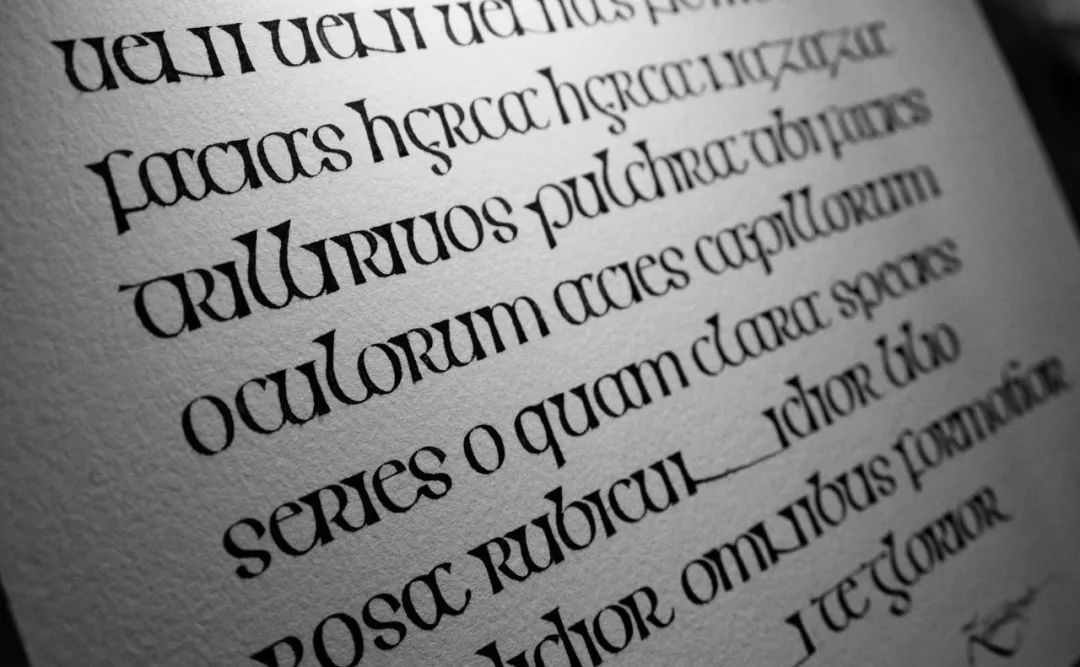 ueni ueni uenias
facias hyrca hyrca nazaza
trilliriuos pulchra tibi facies
oculorum acies capillorum
series o quam clara species
rosa rubicundior lilio
omnibus formosior
te glorior